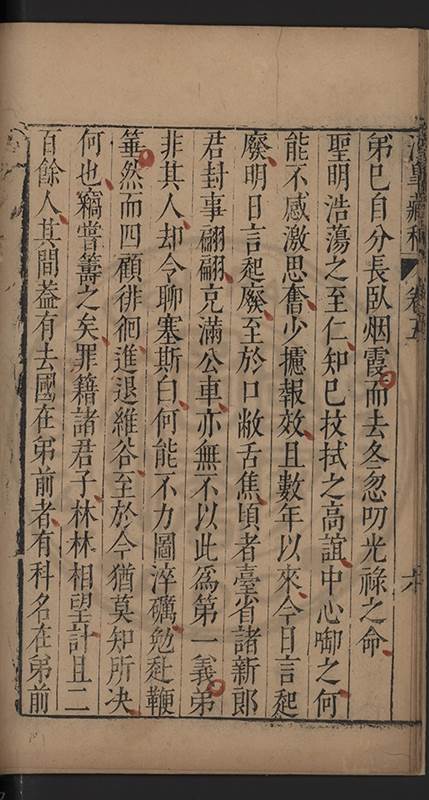 藏稿 卷五 六
弟已自分長臥烟霞而去冬忽叨光祿之命
聖明浩蕩之至仁知已扙拭之高誼中心啣之何
能不感激思奮少攄報效且數年以來今日言起
廢明日言起廢至於口敝舌焦頃者臺省諸新郎
君封事翩翩充滿公車亦無不以此爲第一義弟
非其人却令聊塞斯白何能不力圖淬礪勉赴鞭
箠然而四顧徘徊進退維谷至於今猶莫知所決
何也竊嘗籌之矣罪籍諸君子林林相望計且二
百餘人其間葢有去國在弟前者有科名在弟前